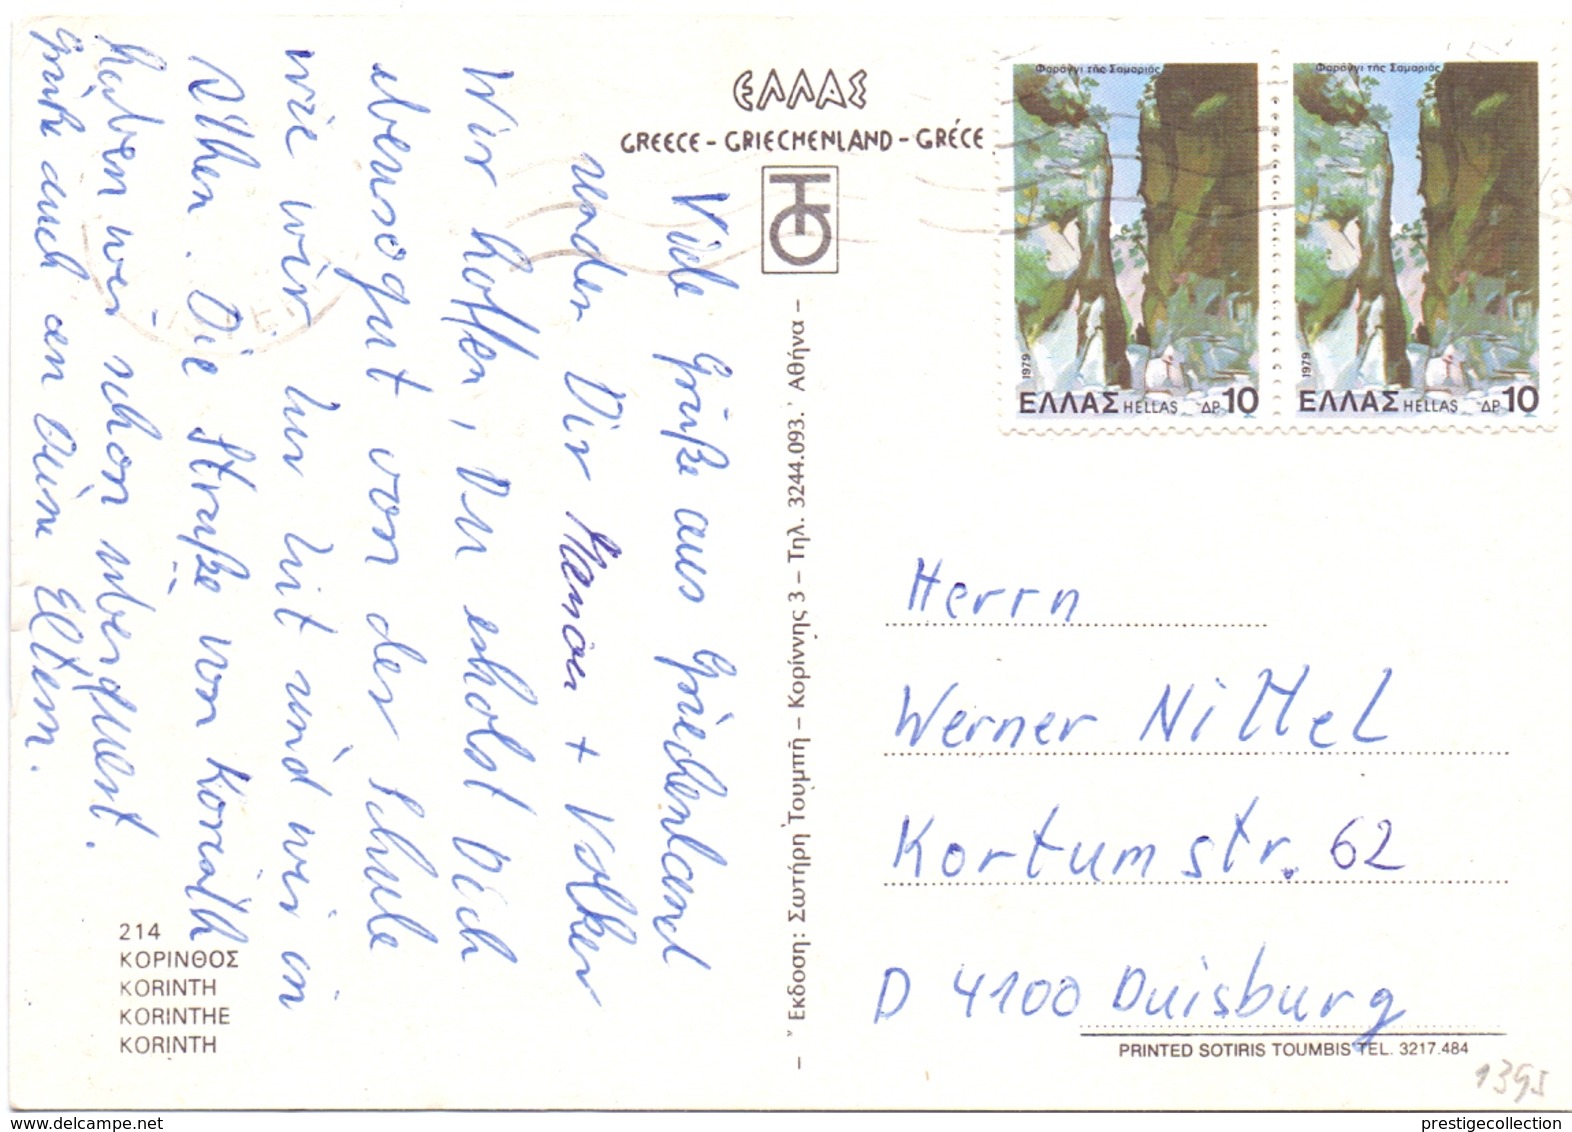 ΕΛΛΑΣ
GREECE – GRIECHENLAND – GRÉCE
Φαράγγι τῆς Σαμαριᾶς
1979
ΕΛΛΑΣ HELLAS ΔΡ 10
Φαράγγι τῆς Σαμαριᾶς
1979
ΕΛΛΑΣ HELLAS ΔΡ 10
Viele Grüße aus Griechenland
senden Dir + Volker
Wir hoffen, Du erholst Dich
ebensogut von der Schule
wie wir. Zur Zeit sind wir in
Athen. Die Straße von Korinth
haben wir schon überquert.
Grüße auch an Deine Eltern.
– Ἔκδοση: Σωτήρη Τουμπῆ – Κορίννης 3 – Τηλ. 3244.093. Ἀθήνα –
Herrn
Werner Nittel
Kortumstr. 62
D 4100 Duisburg
214
ΚΟΡΙΝΘΟΣ
KORINTH
KORINTHE
KORINTH
PRINTED SOTIRIS TOUMBIS TEL. 3217.484
1395
delcampe.net
prestigecollection